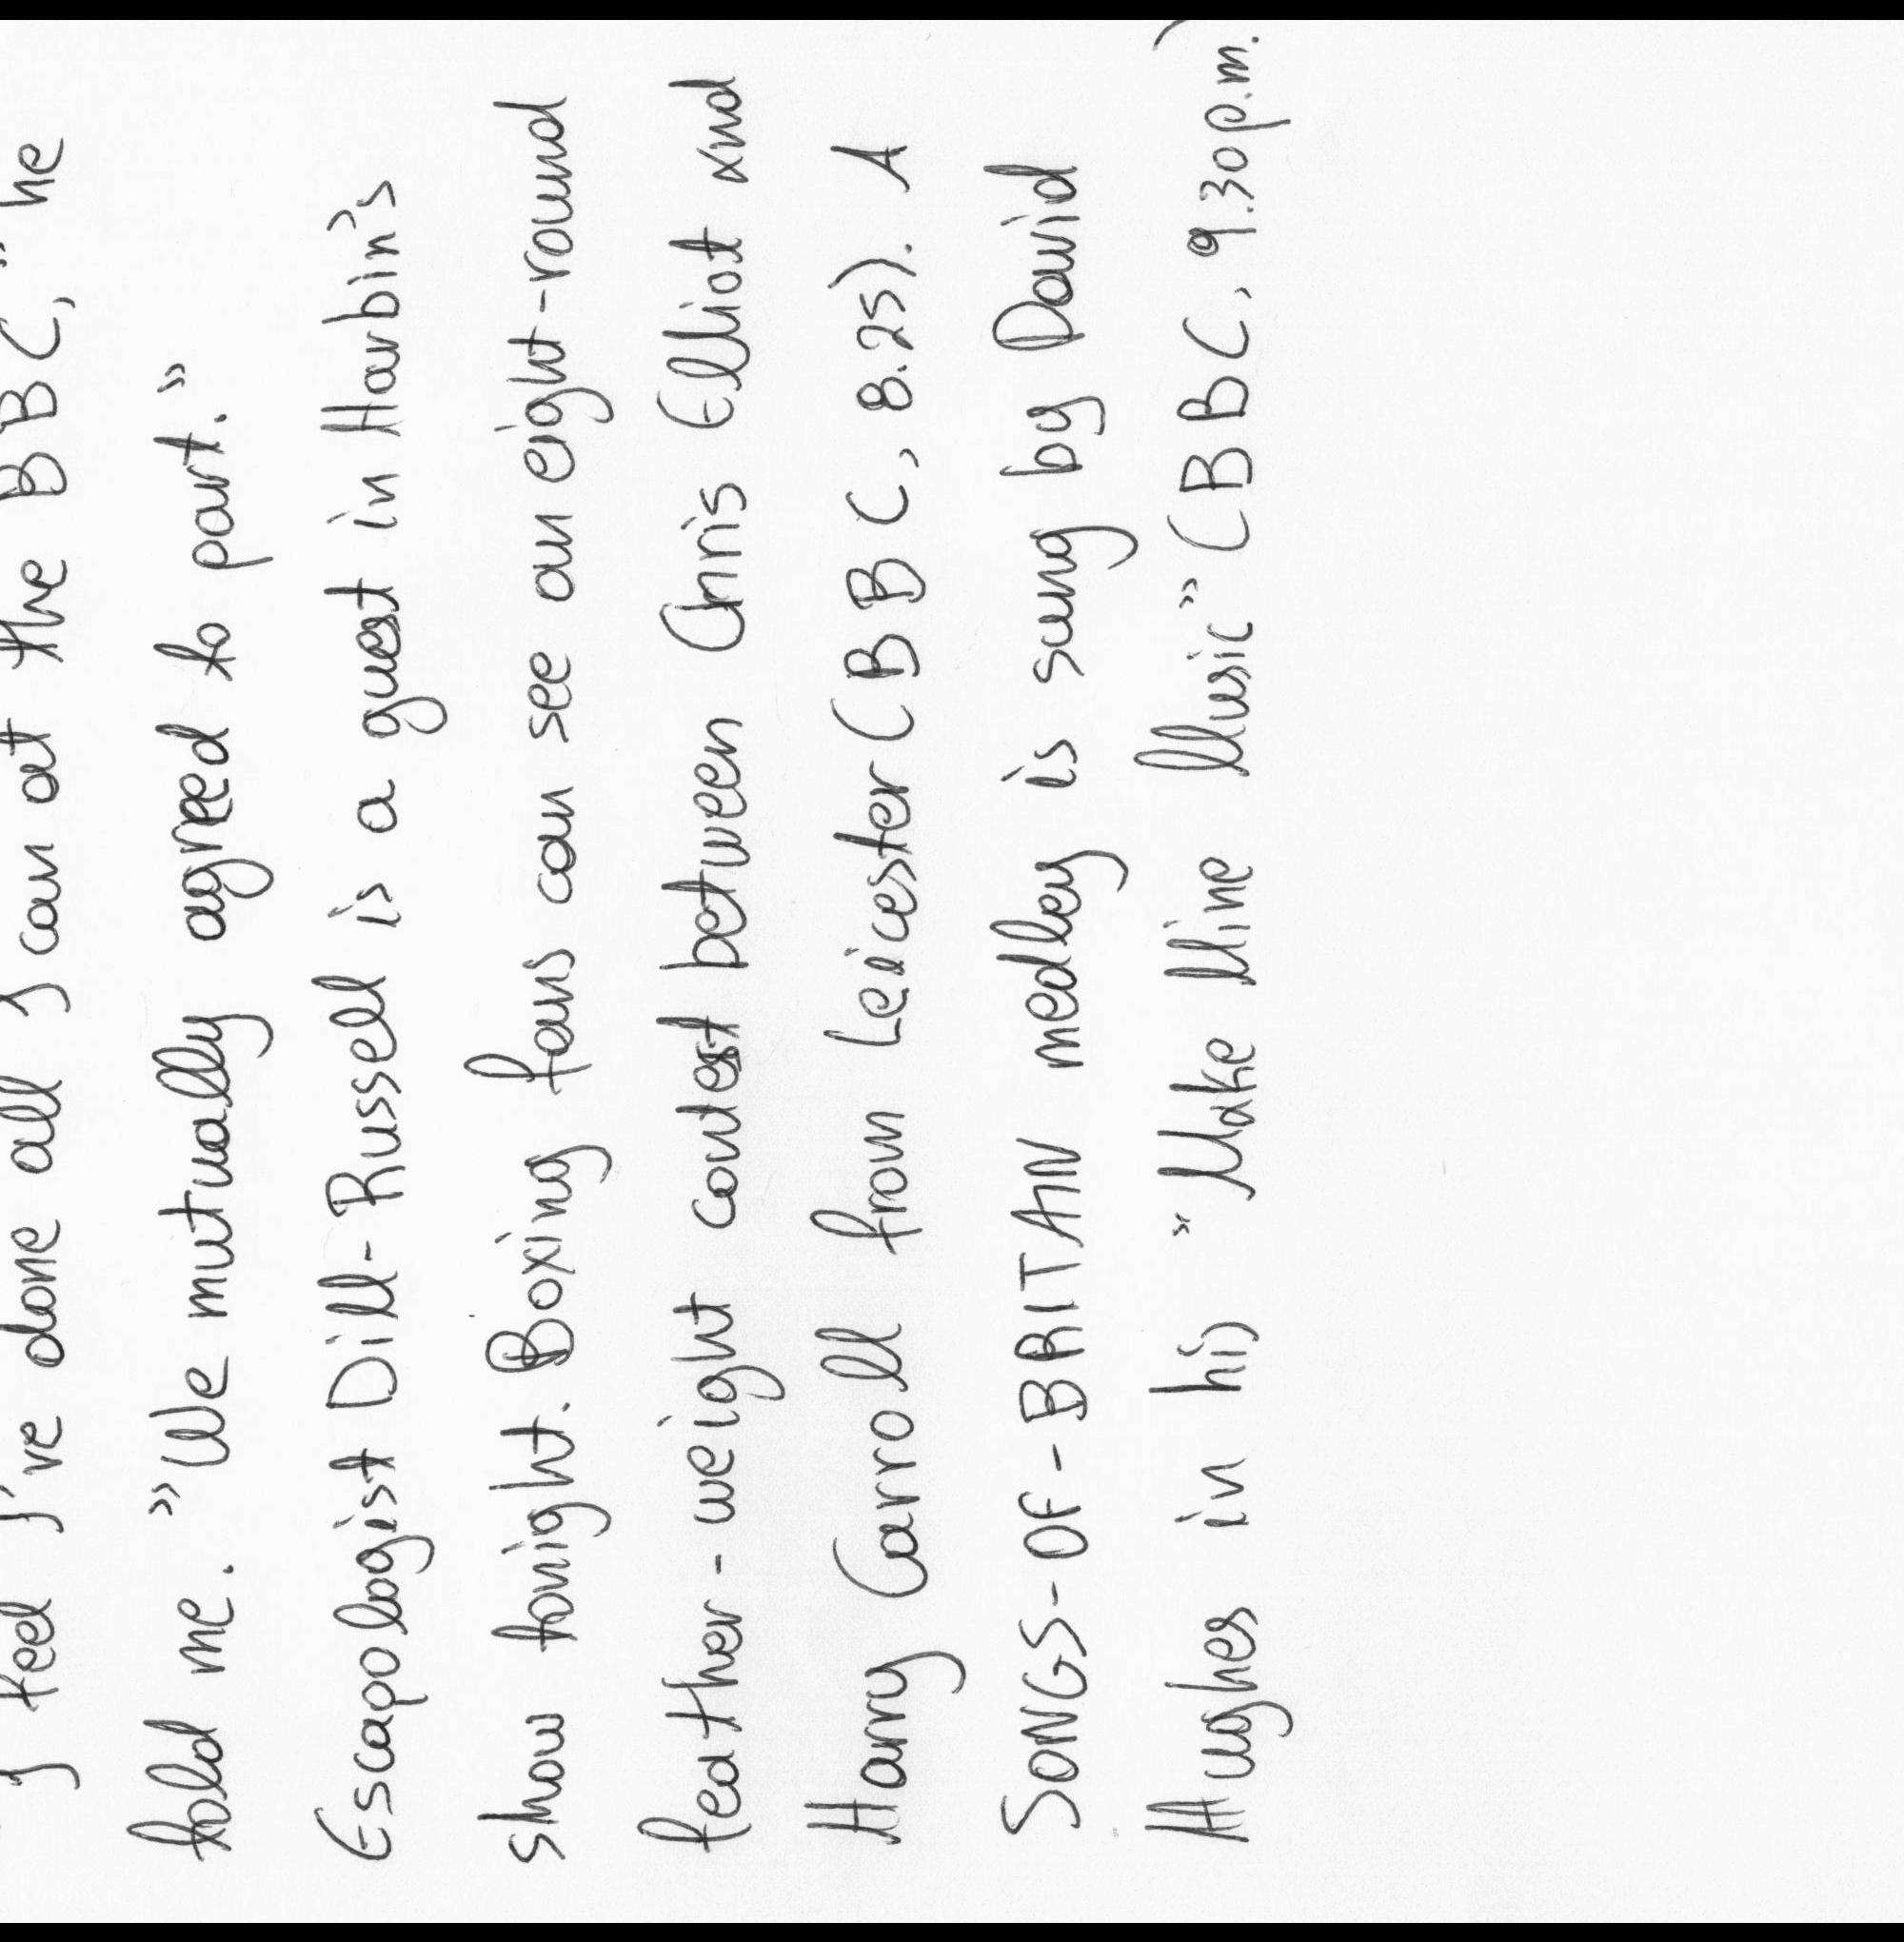 I feel I've done all I can at the BBC," he
told me. "We mutually agreed to part."
Escapologist Dill-Russell is a guest in Harbin's
show tonight. Boxing fans can see an eight-round
feather-weight contest between Chris Elliot and
Harry Carroll from Leicester (BBC, 8.25). A
SONGS-OF-BRITAN medley is sung by David
Hughes in his "Make Mine Music" (BBC, 9.30 p.m.)